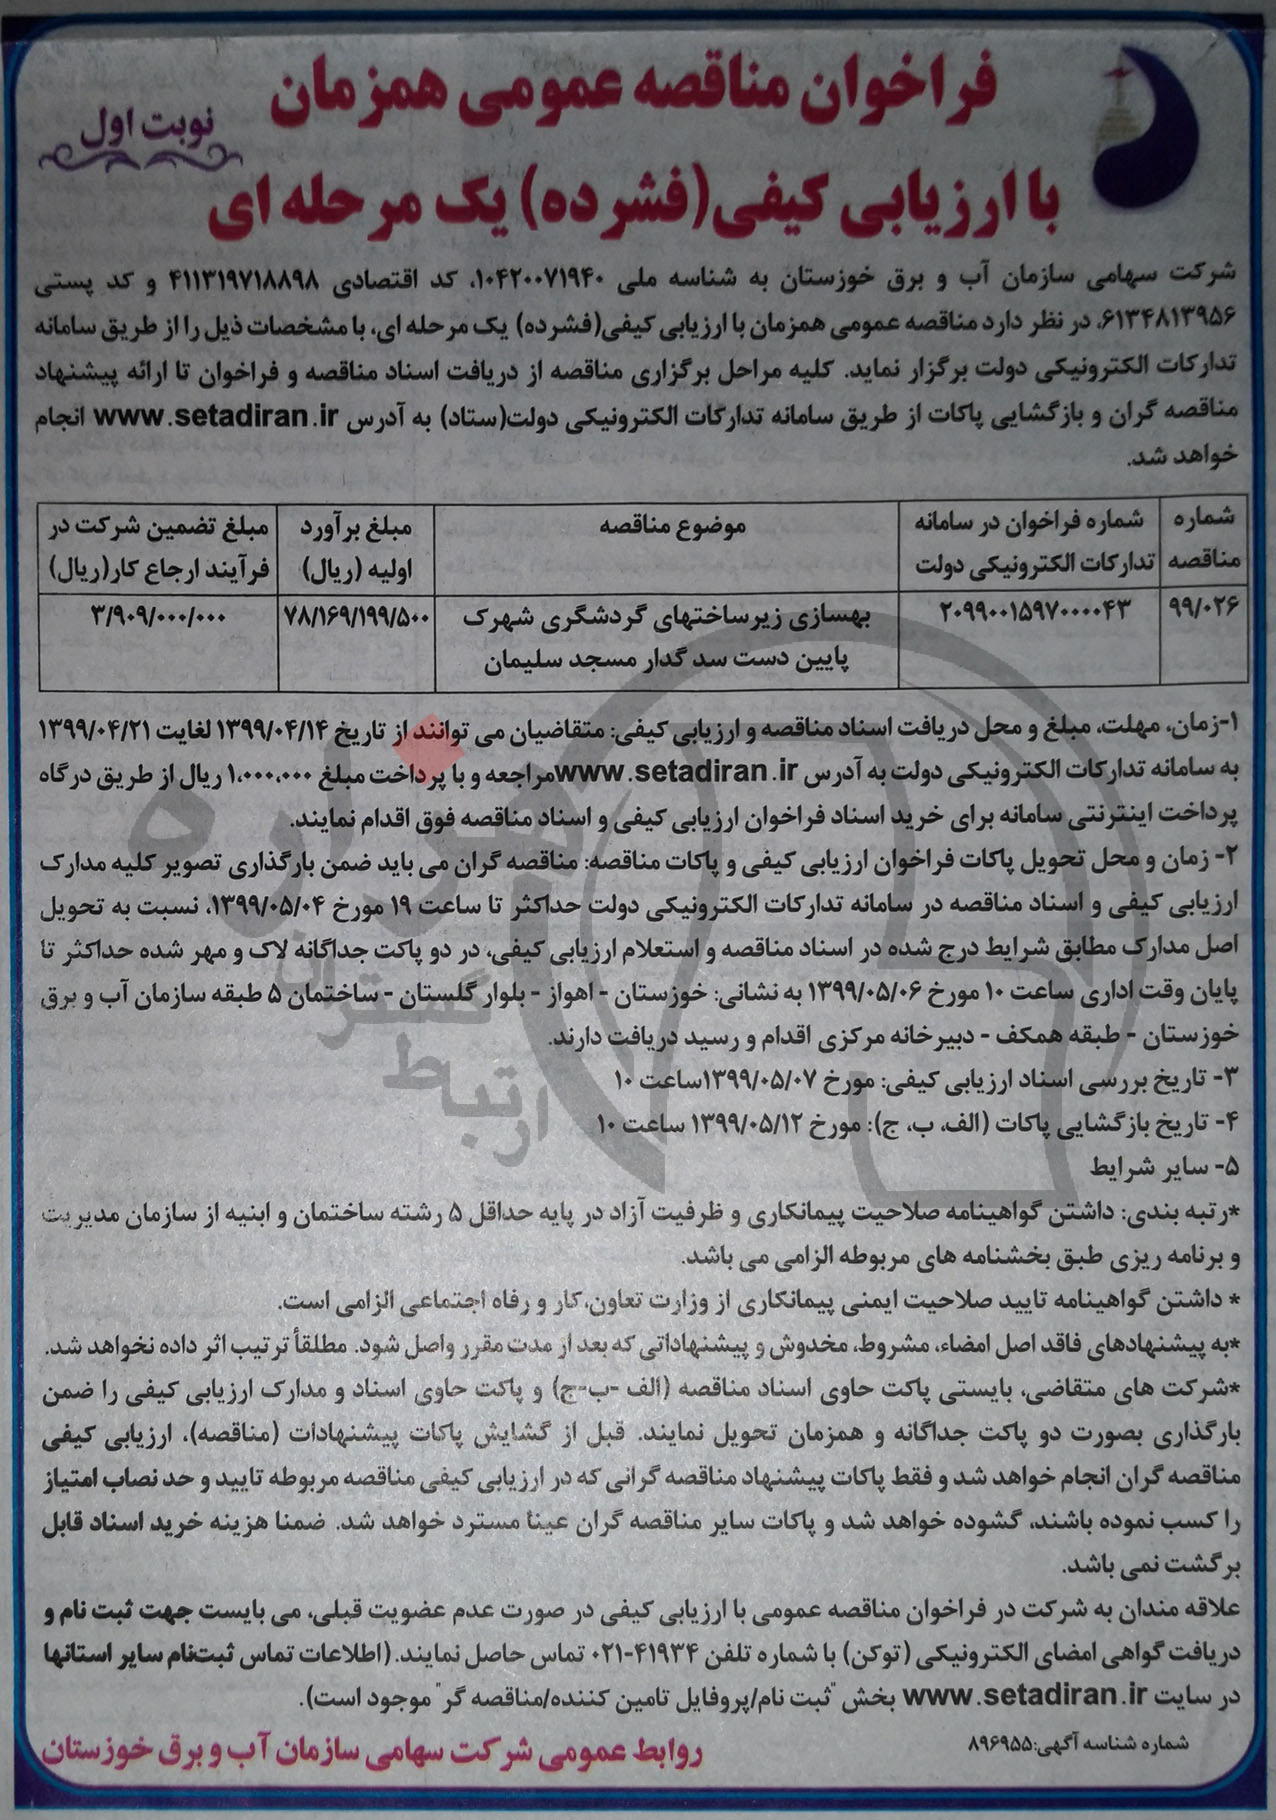 فراخوان مناقصه عمومی همزمان
با ارزیابی کیفی(فشرده) یک مرحله ای
نوبت اول
شرکت سهامی سازمان آب و برق خوزستان به شناسه ملی ۱۰۴۲۰۰۷۱۹۴۰، کد اقتصادی ۴۱۱۳۱۹۷۱۸۸۹۸ و کد پستی
۶۱۳۴۸۱۳۹۵۶، در نظر دارد مناقصه عمومی همزمان با ارزیابی کیفی(فشرده) یک مرحله ای، با مشخصات ذیل را از طریق سامانه
تدارکات الکترونیکی دولت برگزار نماید. کلیه مراحل برگزاری مناقصه از دریافت اسناد مناقصه و فراخوان تا ارائه پیشنهاد
مناقصه گران و بازگشایی پاکات از طریق سامانه تدارکات الکترونیکی دولت(ستاد) به آدرس www.setadiran.ir انجام
خواهد شد.
شماره مناقصه | شماره فراخوان در سامانه تدارکات الکترونیکی دولت | موضوع مناقصه | مبلغ برآورد اولیه (ریال) | مبلغ تضمین شرکت در فرآیند ارجاع کار(ریال)
۹۹/۰۲۶ | ۲۰۹۹۰۰۱۵۹۷۰۰۰۰۴۳ | بهسازی زیرساختهای گردشگری شهرک پایین دست سد گدار مسجد سلیمان | ۷۸/۱۶۹/۱۹۹/۵۰۰ | ۳/۹۰۹/۰۰۰/۰۰۰
۱-زمان، مهلت، مبلغ و محل دریافت اسناد مناقصه و ارزیابی کیفی: متقاضیان می توانند از تاریخ ۱۳۹۹/۰۴/۱۴ لغایت ۱۳۹۹/۰۴/۲۱
به سامانه تدارکات الکترونیکی دولت به آدرس www.setadiran.irمراجعه و با پرداخت مبلغ ۱،۰۰۰،۰۰۰ ریال از طریق درگاه
پرداخت اینترنتی سامانه برای خرید اسناد فراخوان ارزیابی کیفی و اسناد مناقصه فوق اقدام نمایند.
۲- زمان و محل تحویل پاکات فراخوان ارزیابی کیفی و پاکات مناقصه: مناقصه گران می باید ضمن بارگذاری تصویر کلیه مدارک
ارزیابی کیفی و اسناد مناقصه در سامانه تدارکات الکترونیکی دولت حداکثر تا ساعت ۱۹ مورخ ۱۳۹۹/۰۵/۰۴، نسبت به تحویل
اصل مدارک مطابق شرایط درج شده در اسناد مناقصه و استعلام ارزیابی کیفی، در دو پاکت جداگانه لاک و مهر شده حداکثر تا
پایان وقت اداری ساعت ۱۰ مورخ ۱۳۹۹/۰۵/۰۶ به نشانی: خوزستان - اهواز - بلوار گلستان - ساختمان ۵ طبقه سازمان آب و برق
خوزستان - طبقه همکف - دبیرخانه مرکزی اقدام و رسید دریافت دارند.
۳- تاریخ بررسی اسناد ارزیابی کیفی: مورخ ۱۳۹۹/۰۵/۰۷ساعت ۱۰
۴- تاریخ بازگشایی پاکات (الف، ب، ج): مورخ ۱۳۹۹/۰۵/۱۲ ساعت ۱۰
۵- سایر شرایط
*رتبه بندی: داشتن گواهینامه صلاحیت پیمانکاری و ظرفیت آزاد در پایه حداقل ۵ رشته ساختمان و ابنیه از سازمان مدیریت
و برنامه ریزی طبق بخشنامه های مربوطه الزامی می باشد.
* داشتن گواهینامه تایید صلاحیت ایمنی پیمانکاری از وزارت تعاون،کار و رفاه اجتماعی الزامی است.
*به پیشنهادهای فاقد اصل امضاء، مشروط، مخدوش و پیشنهاداتی که بعد از مدت مقرر واصل شود. مطلقاً ترتیب اثر داده نخواهد شد.
*شرکت های متقاضی، بایستی پاکت حاوی اسناد مناقصه (الف -ب-ج) و پاکت حاوی اسناد و مدارک ارزیابی کیفی را ضمن
بارگذاری بصورت دو پاکت جداگانه و همزمان تحویل نمایند. قبل از گشایش پاکات پیشنهادات (مناقصه)، ارزیابی کیفی
مناقصه گران انجام خواهد شد و فقط پاکات پیشنهاد مناقصه گرانی که در ارزیابی کیفی مناقصه مربوطه تایید و حد نصاب امتیاز
را کسب نموده باشند، گشوده خواهد شد و پاکات سایر مناقصه گران عینا مسترد خواهد شد. ضمنا هزینه خرید اسناد قابل
برگشت نمی باشد.
علاقه مندان به شرکت در فراخوان مناقصه عمومی با ارزیابی کیفی در صورت عدم عضویت قبلی، می بایست جهت ثبت نام و
دریافت گواهی امضای الکترونیکی (توکن) با شماره تلفن ۴۱۹۳۴-۰۲۱ تماس حاصل نمایند. (اطلاعات تماس ثبت‌نام سایر استانها
در سایت www.setadiran.ir بخش "ثبت نام/پروفایل تامین کننده/مناقصه گر" موجود است).
شماره شناسه آگهی:۸۹۶۹۵۵
روابط عمومی شرکت سهامی سازمان آب و برق خوزستان
هزاره
گستران
ارتباط